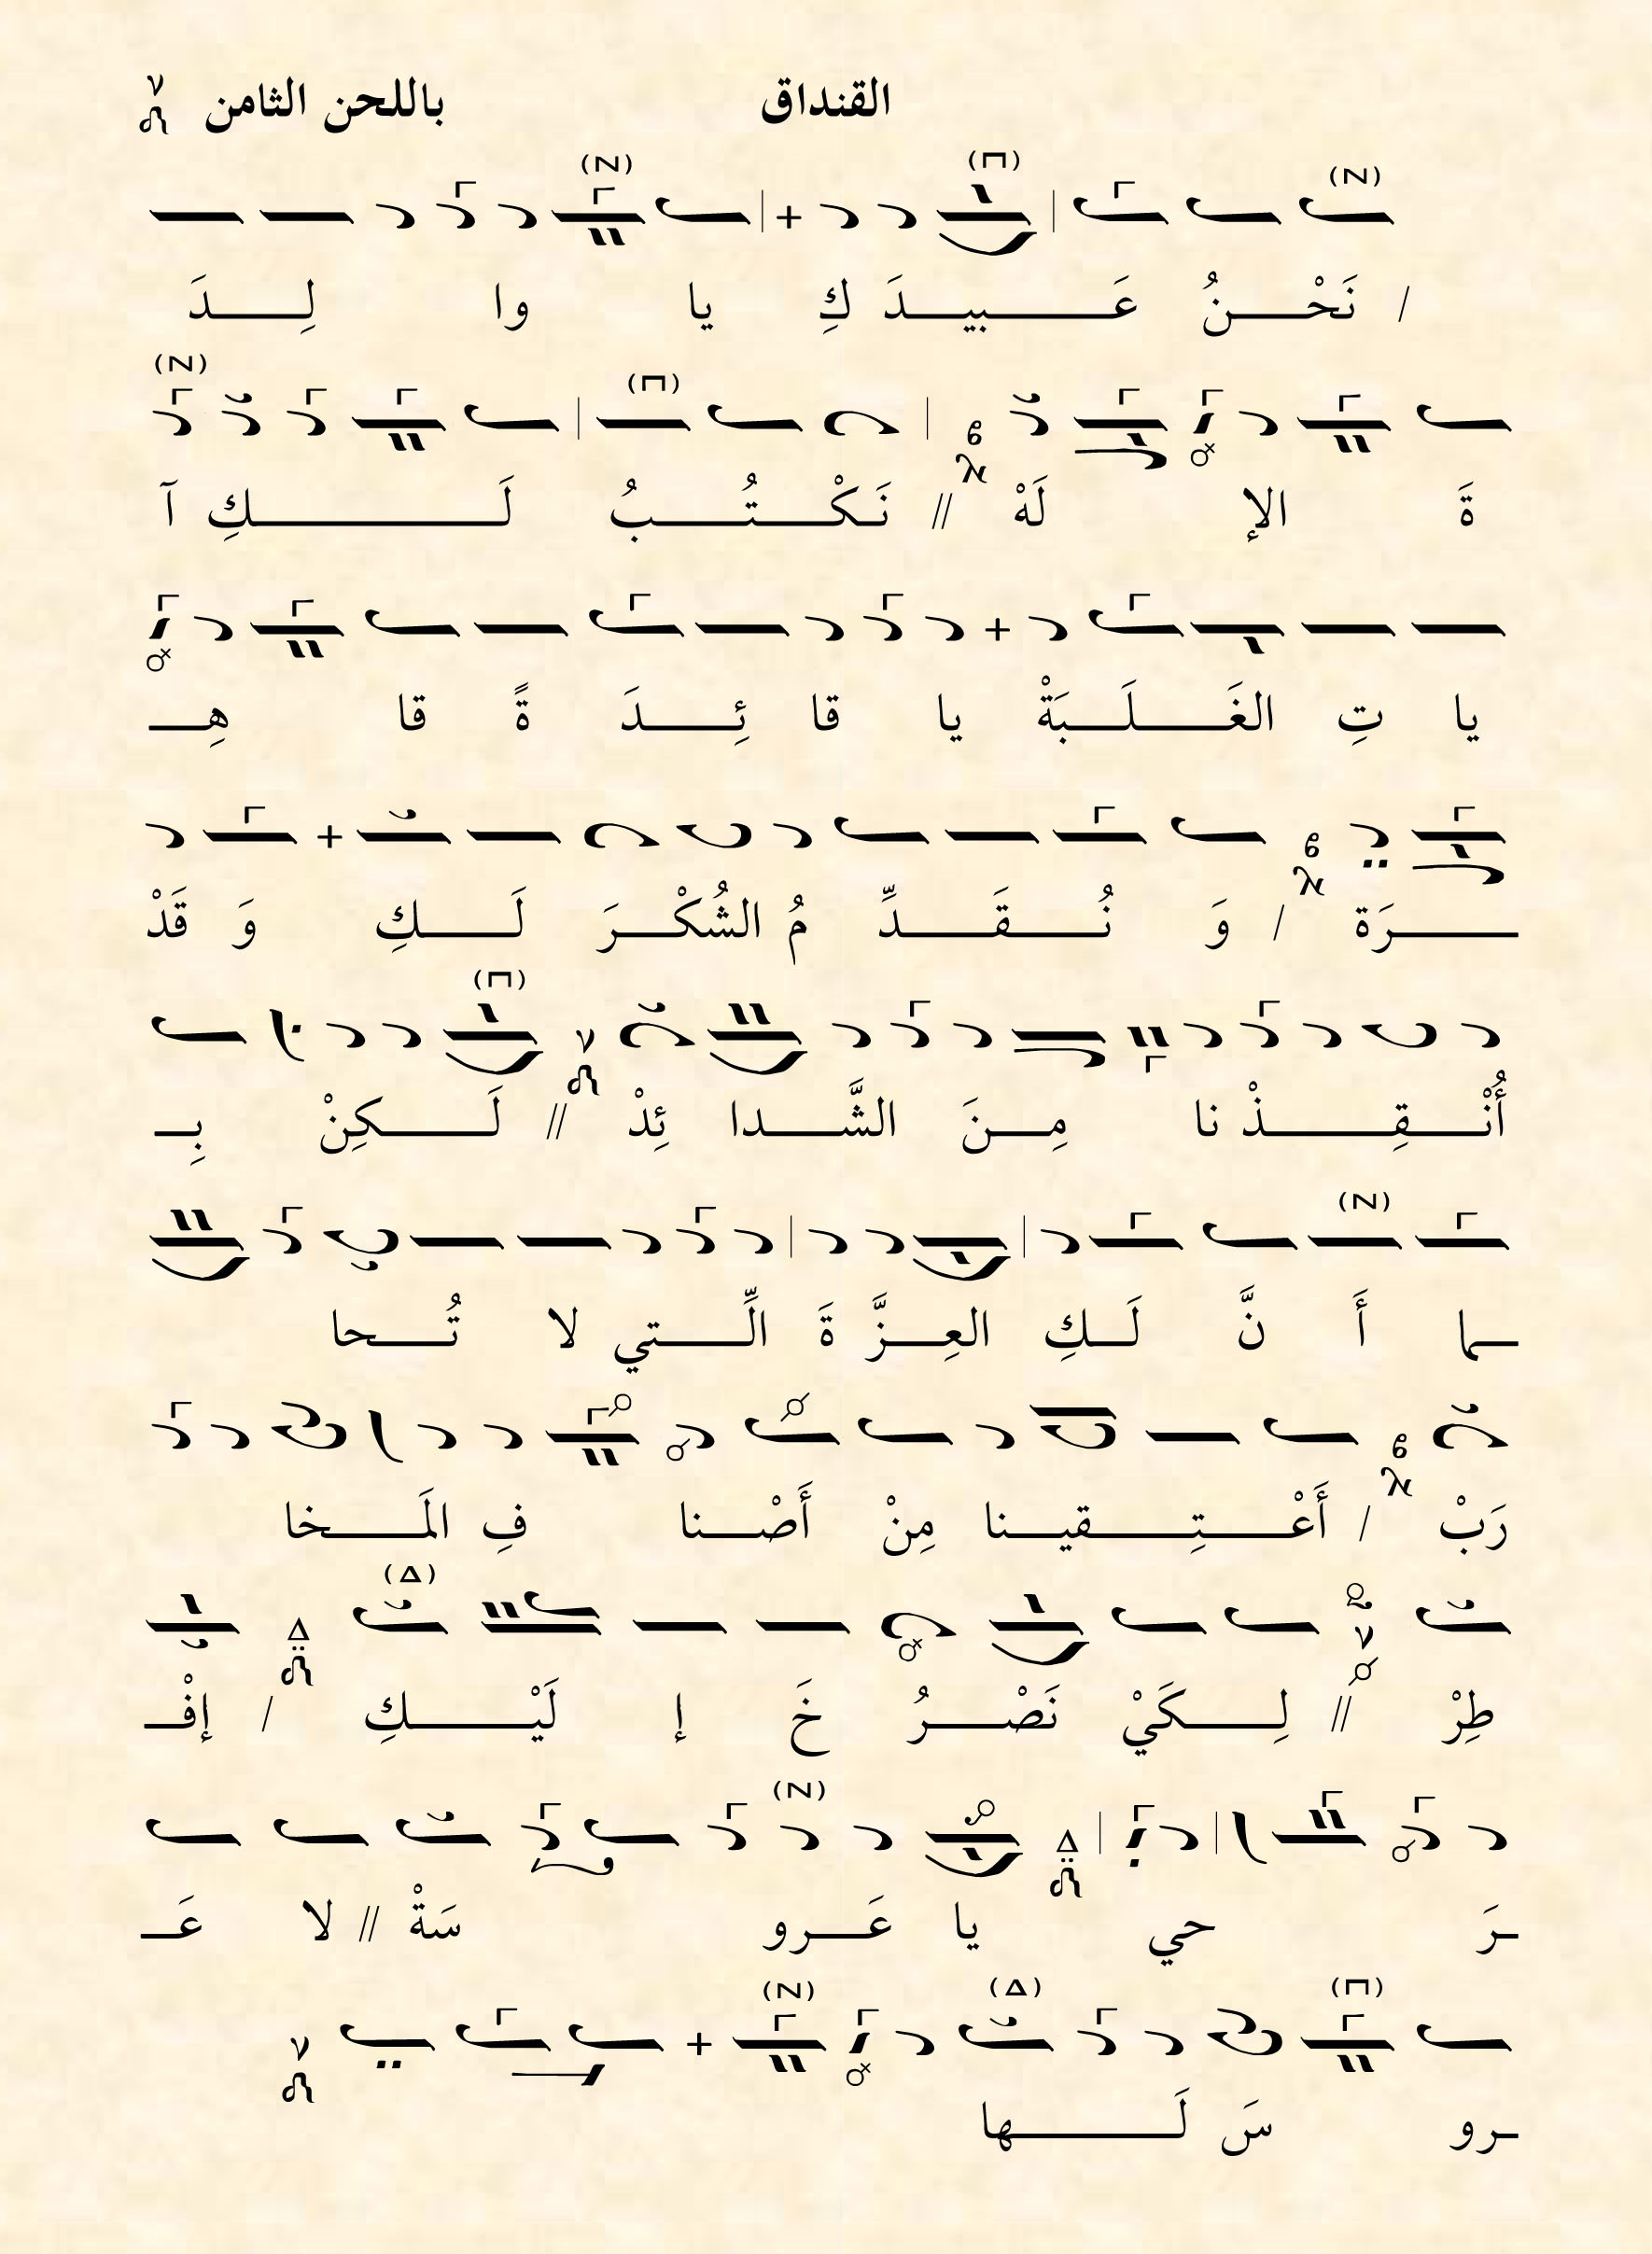 القنداق باللحن الثامن
/ نَحْـــنُ عَـــبيـــدَ كِ يا وا لِـــدَ
ةَ الإ لَهْ // نَـكْـــتُـــبُ لَـــكِ آ
يا تِ الغَـــلَـــبَةْ يا قا ئِـــدَ ةً قا هِـــ
ـــرَة / وَ نُـــقَـــدِّ مُ الشُكْـــرَ لَـــكِ وَ قَدْ
أُنْـــقِـــذْ نا مِـــنَ الشَّـــدا ئِدْ // لَـــكِنْ بِـــ
ـــما أَ نَّ لَـــكِ العِـــزَّ ةَ الِّـــتي لا تُـــحا
رَبْ / أَعْـــتِـــقيـــنا مِنْ أَصْـــنا فِ المَـــخا
طِرْ // لِـــكَيْ نَصْـــرُ خَ إ لَيْـــكِ / إفْـــ
ـرَ حي يا عَـــرو سَةْ // لا عَـــ
ـرو سَ لَـــها